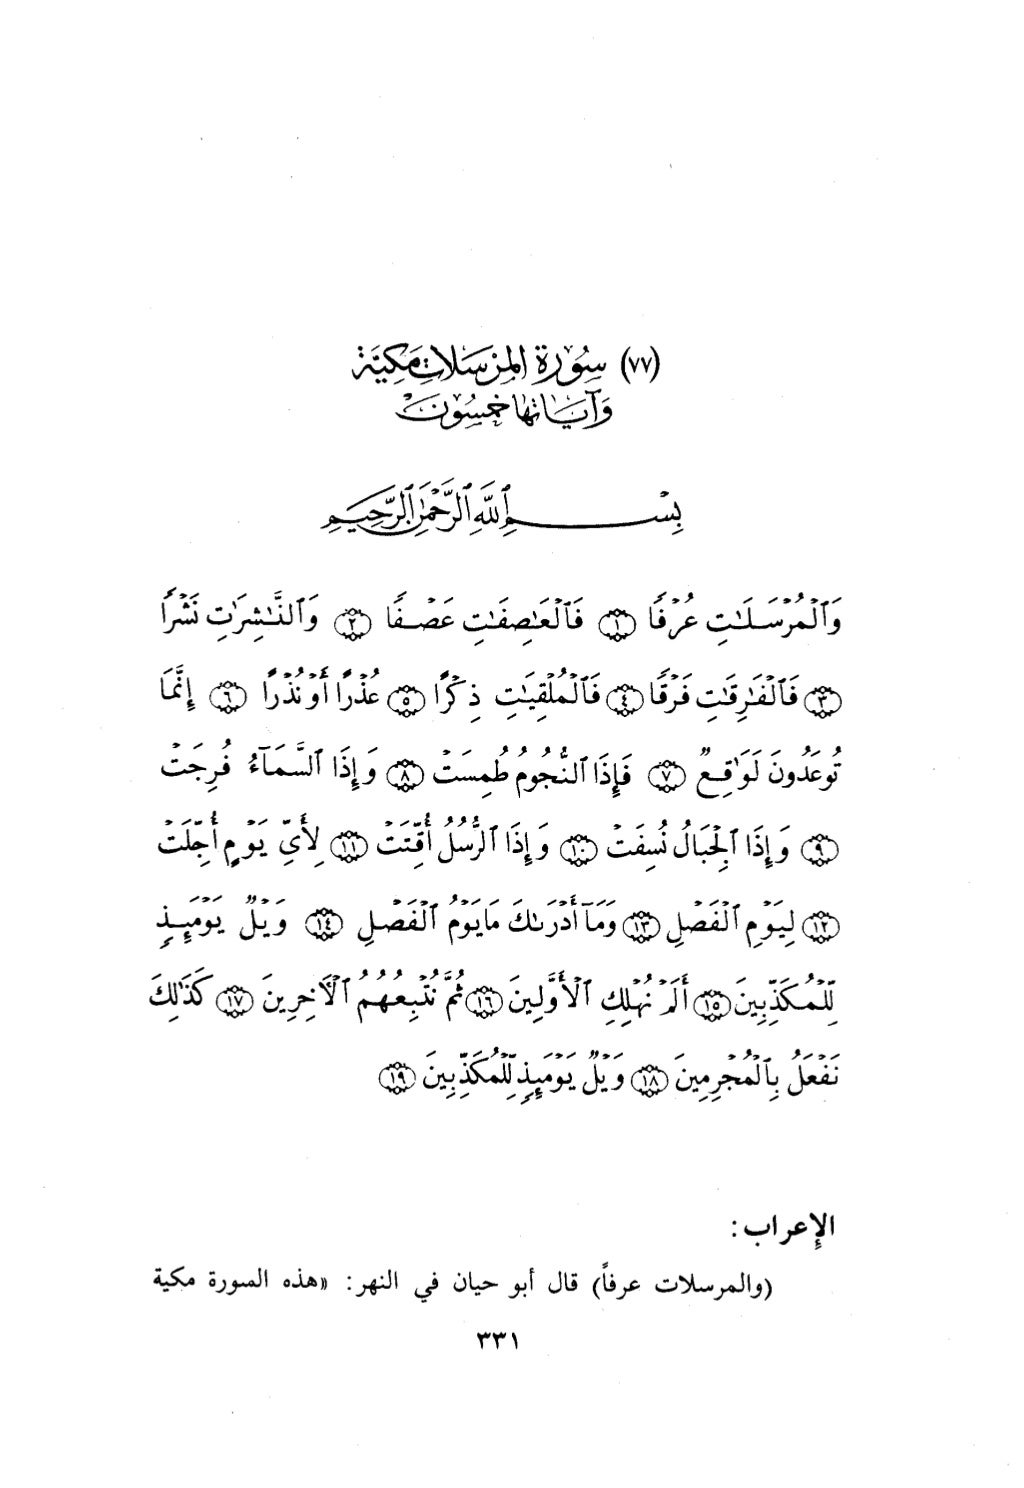 (٧٧) سُورَة المُرْسَلاتِ مَكِيَّة
وَآيَاتُهَا خَمْسُونَ
بِسْمِ ٱللَّهِ ٱلرَّحْمَٰنِ ٱلرَّحِيمِ
وَٱلْمُرْسَلَٰتِ عُرْفًا ۝١ فَٱلْعَٰصِفَٰتِ عَصْفًا ۝٢ وَٱلنَّٰشِرَٰتِ نَشْرًا
۝٣ فَٱلْفَٰرِقَٰتِ فَرْقًا ۝٤ فَٱلْمُلْقِيَٰتِ ذِكْرًا ۝٥ عُذْرًا أَوْ نُذْرًا ۝٦ إِنَّمَا
تُوعَدُونَ لَوَٰقِعٌ ۝٧ فَإِذَا ٱلنُّجُومُ طُمِسَتْ ۝٨ وَإِذَا ٱلسَّمَآءُ فُرِجَتْ
۝٩ وَإِذَا ٱلْجِبَالُ نُسِفَتْ ۝١٠ وَإِذَا ٱلرُّسُلُ أُقِّتَتْ ۝١١ لِأَيِّ يَوْمٍ أُجِّلَتْ
۝١٢ لِيَوْمِ ٱلْفَصْلِ ۝١٣ وَمَآ أَدْرَىٰكَ مَا يَوْمُ ٱلْفَصْلِ ۝١٤ وَيْلٌ يَوْمَئِذٍ
لِّلْمُكَذِّبِينَ ۝١٥ أَلَمْ نُهْلِكِ ٱلْأَوَّلِينَ ۝١٦ ثُمَّ نُتْبِعُهُمُ ٱلْآخِرِينَ ۝١٧ كَذَٰلِكَ
نَفْعَلُ بِٱلْمُجْرِمِينَ ۝١٨ وَيْلٌ يَوْمَئِذٍ لِّلْمُكَذِّبِينَ ۝١٩
الإِعراب:
(والمرسلات عرفاً) قال أبو حيان في النهر: «هذه السورة مكية
٣٣١